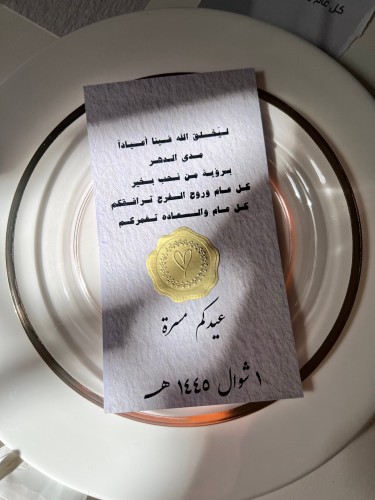 كل عام
ليخلق الله فينا أعياداً
مدى الدهر
برؤية من نحب بخير
كل عام وروح الفرح ترافقكم
كل عام والسعاده تغمركم
عيدكم مسرة
١ شوال ١٤٤٥ هـ